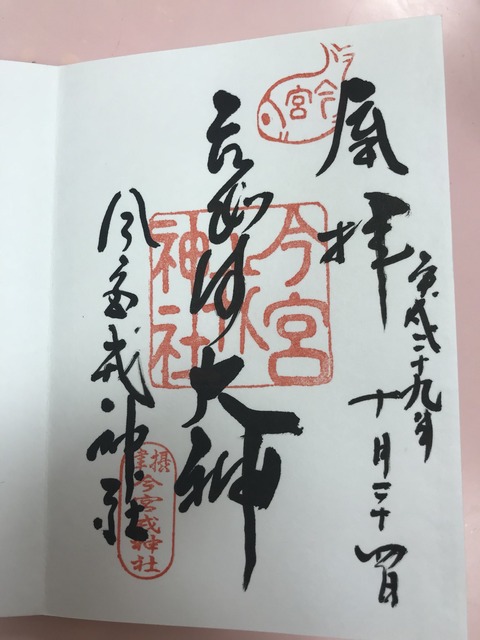 奉拝
平成二十九年
十月二十四日
大神
今宮戎神社
今宮
今宮戎神社
摂津
今宮戎神社